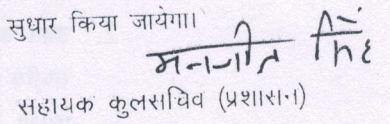 सुधार किया जायेगा।
मनजीत सिंह
सहायक कुलसचिव (प्रशासन)